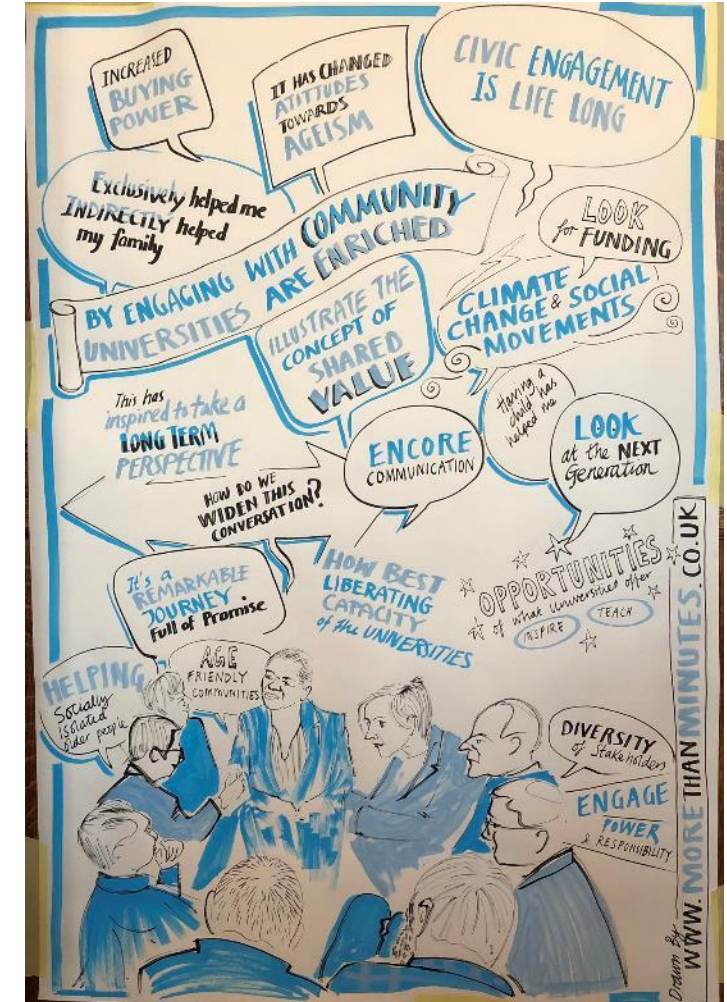 INCREASED
BUYING
POWER
IT HAS CHANGED
ATITUDES
TOWARDS
AGEISM
CIVIC ENGAGEMENT
IS LIFE LONG
Exclusively helped me
INDIRECTLY helped
my family
BY ENGAGING WITH COMMUNITY
UNIVERSITIES ARE ENRICHED
LOOK
for FUNDING
ILLUSTRATE THE
CONCEPT OF
SHARED
VALUE
CLIMATE
CHANGE & SOCIAL
MOVEMENTS
This has
inspired to take a
LONG TERM
PERSPECTIVE
Having a
child has
helped me
ENCORE
COMMUNICATION
LOOK
at the NEXT
Generation
HOW DO WE
WIDEN THIS
CONVERSATION?
It's a
REMARKABLE
JOURNEY
Full of Promise
HOW BEST
LIBERATING
CAPACITY
of the UNIVERSITIES
OPPORTUNITIES
of what Universities offer
INSPIRE
TEACH
HELPING
Socially
isolated
older people
AGE
FRIENDLY
COMMUNITIES
DIVERSITY
of Stakeholders
ENGAGE
POWER
& RESPONSIBILITY
Drawn By
WWW.MORETHANMINUTES.CO.UK